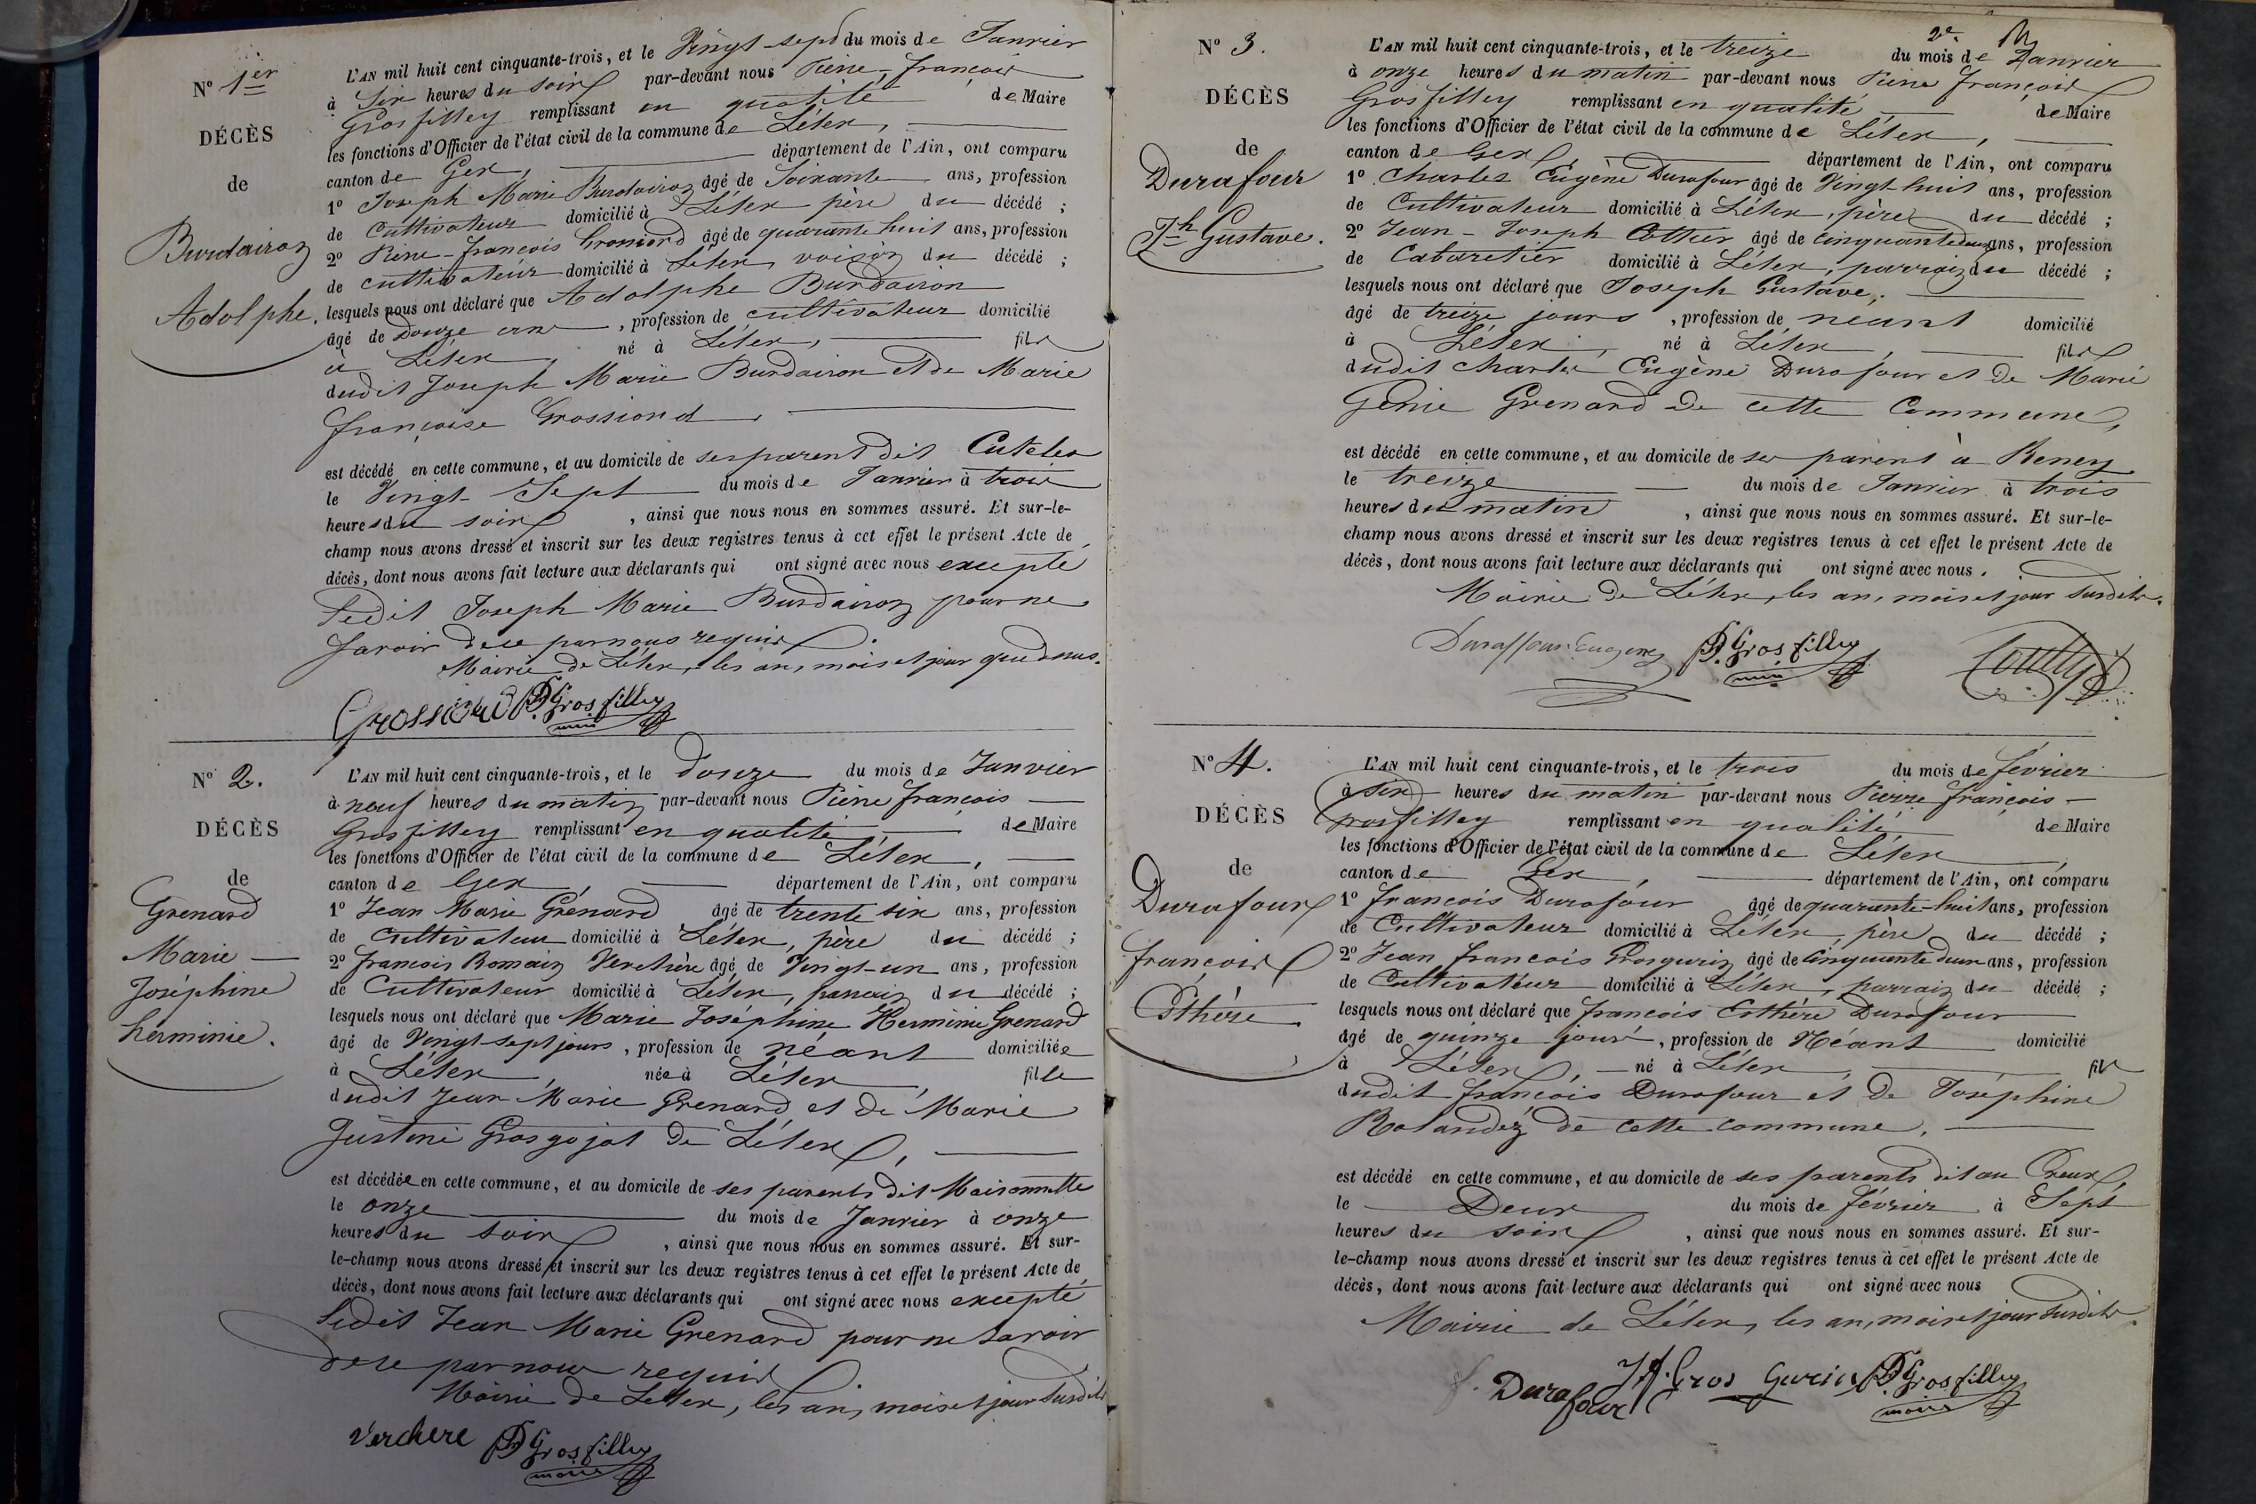 N° 1er
DÉCÈS
de
Burdairon
Adolphe.
L'AN mil huit cent cinquante-trois, et le Vingt-sept du mois de Janvier
à Six heures du soir par-devant nous Pierre-françois
Grosfilley remplissant en qualité de Maire
les fonctions d'Officier de l'état civil de la commune de Lélex,
canton de Gex, département de l'Ain, ont comparu
1° Joseph Marie Burdairon âgé de Soixante ans, profession
de Cultivateur domicilié à Lélex père du décédé ;
2° Pierre-françois Grossiord âgé de quarante huit ans, profession
de cultivateur domicilié à Lélex, voisin du décédé ;
lesquels nous ont déclaré que Adolphe Burdairon
âgé de Douze ans, profession de cultivateur domicilié
à Lélex, né à Lélex, fils
dudit Joseph Marie Burdairon et de Marie
françoise Grossiord,
est décédé en cette commune, et au domicile de ses parents dit
le Vingt-Sept du mois de Janvier à trois
heures du soir, ainsi que nous nous en sommes assuré. Et sur-le-
champ nous avons dressé et inscrit sur les deux registres tenus à cet effet le présent Acte de
décès, dont nous avons fait lecture aux déclarants qui ont signé avec nous excepté
Ledit Joseph Marie Burdairon pour ne
savoir de ce par nous requis.
Mairie de Lélex, les an, mois et jour que dessus.
Grossiord P.F. Grosfilley
maire
N° 2.
DÉCÈS
de
Grenard
Marie
Joséphine
herminie.
L'AN mil huit cent cinquante-trois, et le Douze du mois de Janvier
à neuf heures du matin par-devant nous Pierre françois
Grosfilley remplissant en qualité de Maire
les fonctions d'Officier de l'état civil de la commune de Lélex,
canton de Gex, département de l'Ain, ont comparu
1° Jean Marie Grenard âgé de trente six ans, profession
de Cultivateur domicilié à Lélex, père du décédé ;
2° françois Romain Verchère âgé de Vingt-un ans, profession
de Cultivateur domicilié à Lélex, parrain du décédé ;
lesquels nous ont déclaré que Marie Joséphine Herminie Grenard
âgé de Vingt-sept jours, profession de néant domiciliée
à Lélex, née à Lélex, fille
dudit Jean Marie Grenard et de Marie
Justine Grosgojat de Lélex,
est décédée en cette commune, et au domicile de ses parents dit Maisonnette
le onze du mois de Janvier à onze
heures du soir, ainsi que nous nous en sommes assuré. Et sur-
le-champ nous avons dressé et inscrit sur les deux registres tenus à cet effet le présent Acte de
décès, dont nous avons fait lecture aux déclarants qui ont signé avec nous excepté
Ledit Jean Marie Grenard pour ne savoir
de ce par nous requis
Mairie de Lélex, les an, mois et jour susdits
Verchere P.F. Grosfilley
maire
N° 3.
DÉCÈS
de
Durafour
Jh Gustave.
2e
L'AN mil huit cent cinquante-trois, et le treize du mois de Janvier
à onze heures du matin par-devant nous Pierre François
Grosfilley remplissant en qualité de Maire
les fonctions d'Officier de l'état civil de la commune de Lélex,
canton de Gex, département de l'Ain, ont comparu
1° Charles Eugène Durafour âgé de Vingt huit ans, profession
de Cultivateur domicilié à Lélex, père du décédé ;
2° Jean-Joseph Cottier âgé de Cinquante deux ans, profession
de Cabaretier domicilié à Lélex, parrain du décédé ;
lesquels nous ont déclaré que Joseph Gustave,
âgé de treize jours, profession de néant domicilié
à Lélex, né à Lélex, fils
dudit Charles Eugène Durafour et de Marie
Génie Grenard de cette Commune,
est décédé en cette commune, et au domicile de ses parents à
le treize du mois de Janvier à trois
heures du matin, ainsi que nous nous en sommes assuré. Et sur-le-
champ nous avons dressé et inscrit sur les deux registres tenus à cet effet le présent Acte de
décès, dont nous avons fait lecture aux déclarants qui ont signé avec nous.
Mairie de Lélex, les an, mois et jour susdits.
Duraffour Eugene P.F. Grosfilley
maire
N° 4.
DÉCÈS
de
Durafour
francois
Esthère
L'AN mil huit cent cinquante-trois, et le trois du mois de février
à six heures du matin par-devant nous Pierre françois
Grosfilley remplissant en qualité de Maire
les fonctions d'Officier de l'état civil de la commune de Lélex,
canton de Gex, département de l'Ain, ont comparu
1° francois Durafour âgé de quarante-huit ans, profession
de Cultivateur domicilié à Lélex, père du décédé ;
2° Jean francois Grosgurin âgé de Cinquante deux ans, profession
de Cultivateur domicilié à Lélex, parrain du décédé ;
lesquels nous ont déclaré que francois Esthère Durafour
âgé de quinze jours, profession de Néant domicilié
à Lélex, né à Lélex, fils
dudit francois Durafour et de Joséphine
Rolandez de cette commune,
est décédé en cette commune, et au domicile de ses parents dit au Creux,
le Deux du mois de février à Sept
heures du soir, ainsi que nous nous en sommes assuré. Et sur-
le-champ nous avons dressé et inscrit sur les deux registres tenus à cet effet le présent Acte de
décès, dont nous avons fait lecture aux déclarants qui ont signé avec nous
Mairie de Lélex, les an, mois et jour susdits.
f. Durafour J.f. Gros Gurin P.F. Grosfilley
maire